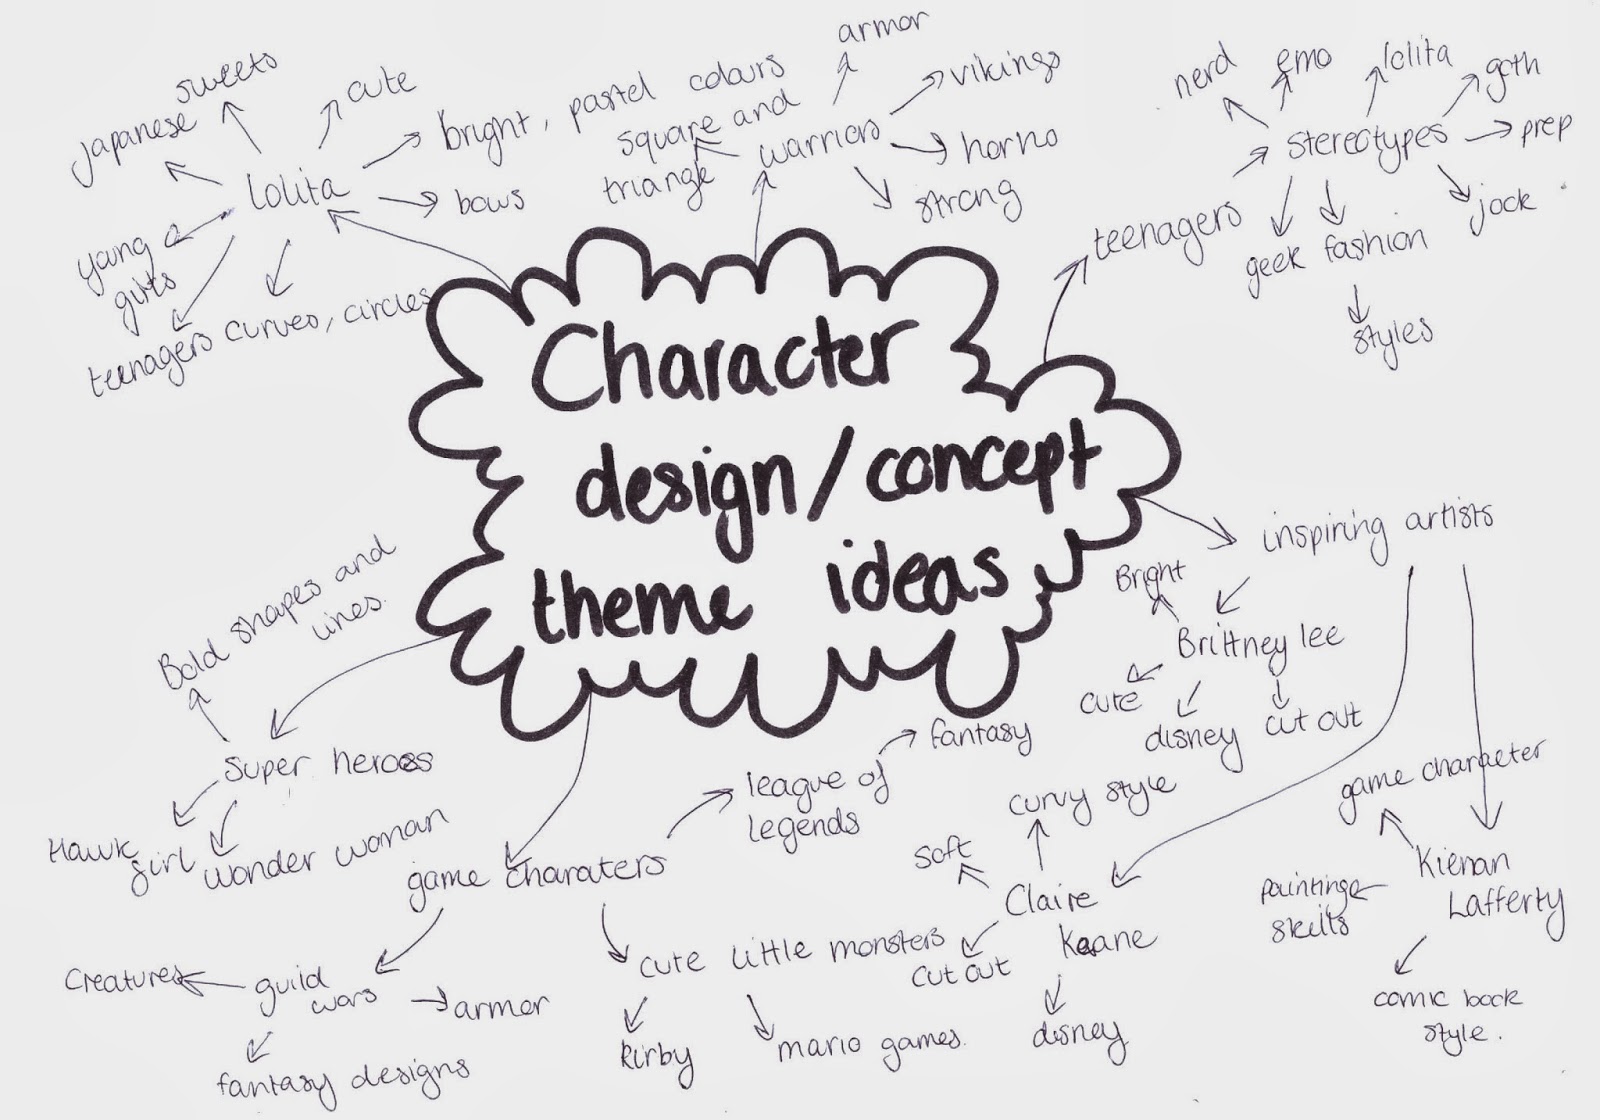 Character
design/concept
theme ideas
lolita
Japanese
sweets
cute
bright, pastel colours
bows
curves, circles
teenagers
young
girls
warriors
square and
triangle
armor
vikings
horns
strong
teenagers
stereotypes
nerd
emo
lolita
goth
prep
jock
geek fashion
styles
inspiring artists
Brittney lee
Bright
cute
disney
cut out
Claire
Keane
curvy style
soft
cut out
disney
Kienan
Lafferty
game character
painting
skills
comic book
style.
game charaters
league of
legends
fantasy
cute little monsters
kirby
mario games.
guild
wars
creatures
armor
fantasy designs
super heroes
Bold shapes and
lines.
Hawk
girl
wonder woman